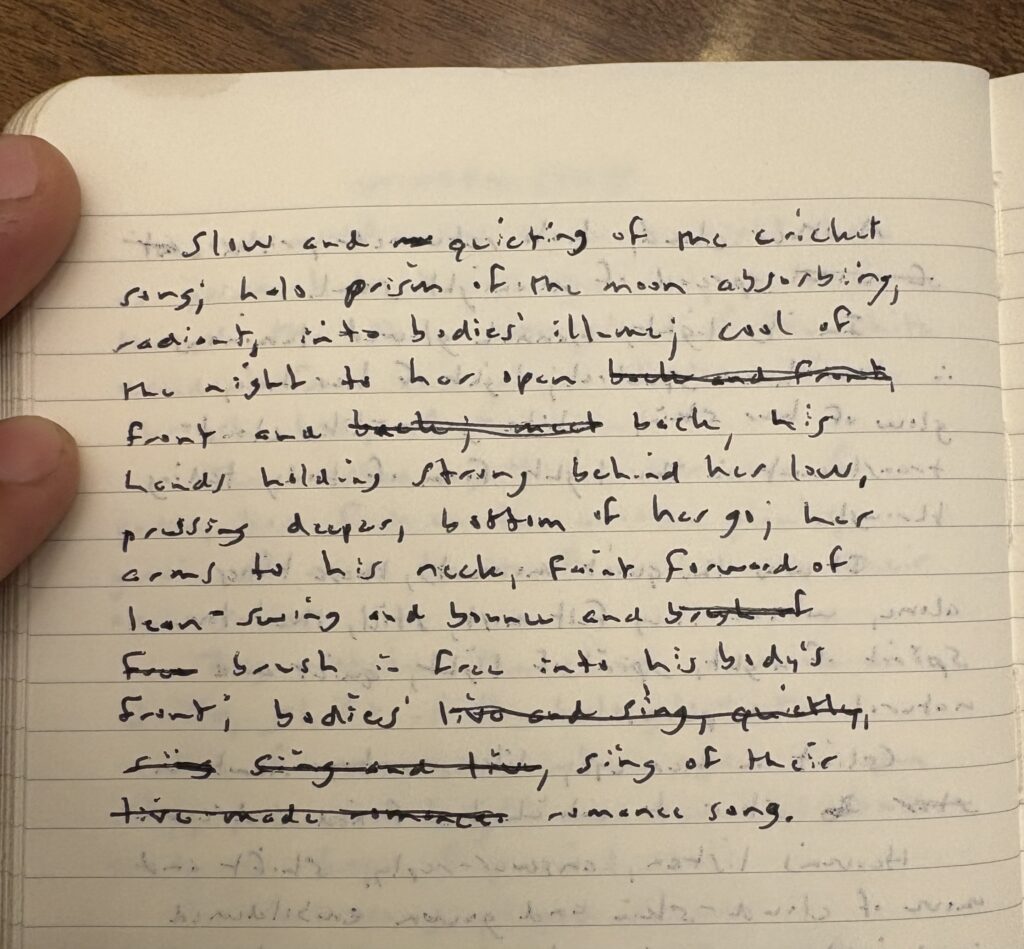 Slow and quieting of the cricket
song; halo prism of the moon absorbing,
radiant, into bodies' illume; cool of
the night to her open back and front,
front and back; meet back, his
hands holding strong behind her low,
pressing deeper, bottom of her go; her
arms to his neck, faint forward of
lean-swing and bounce and brush of
free brush in free into his body's
front; bodies' live and sing, quietly,
sing sing and live, sing of their
live made romance romance song.